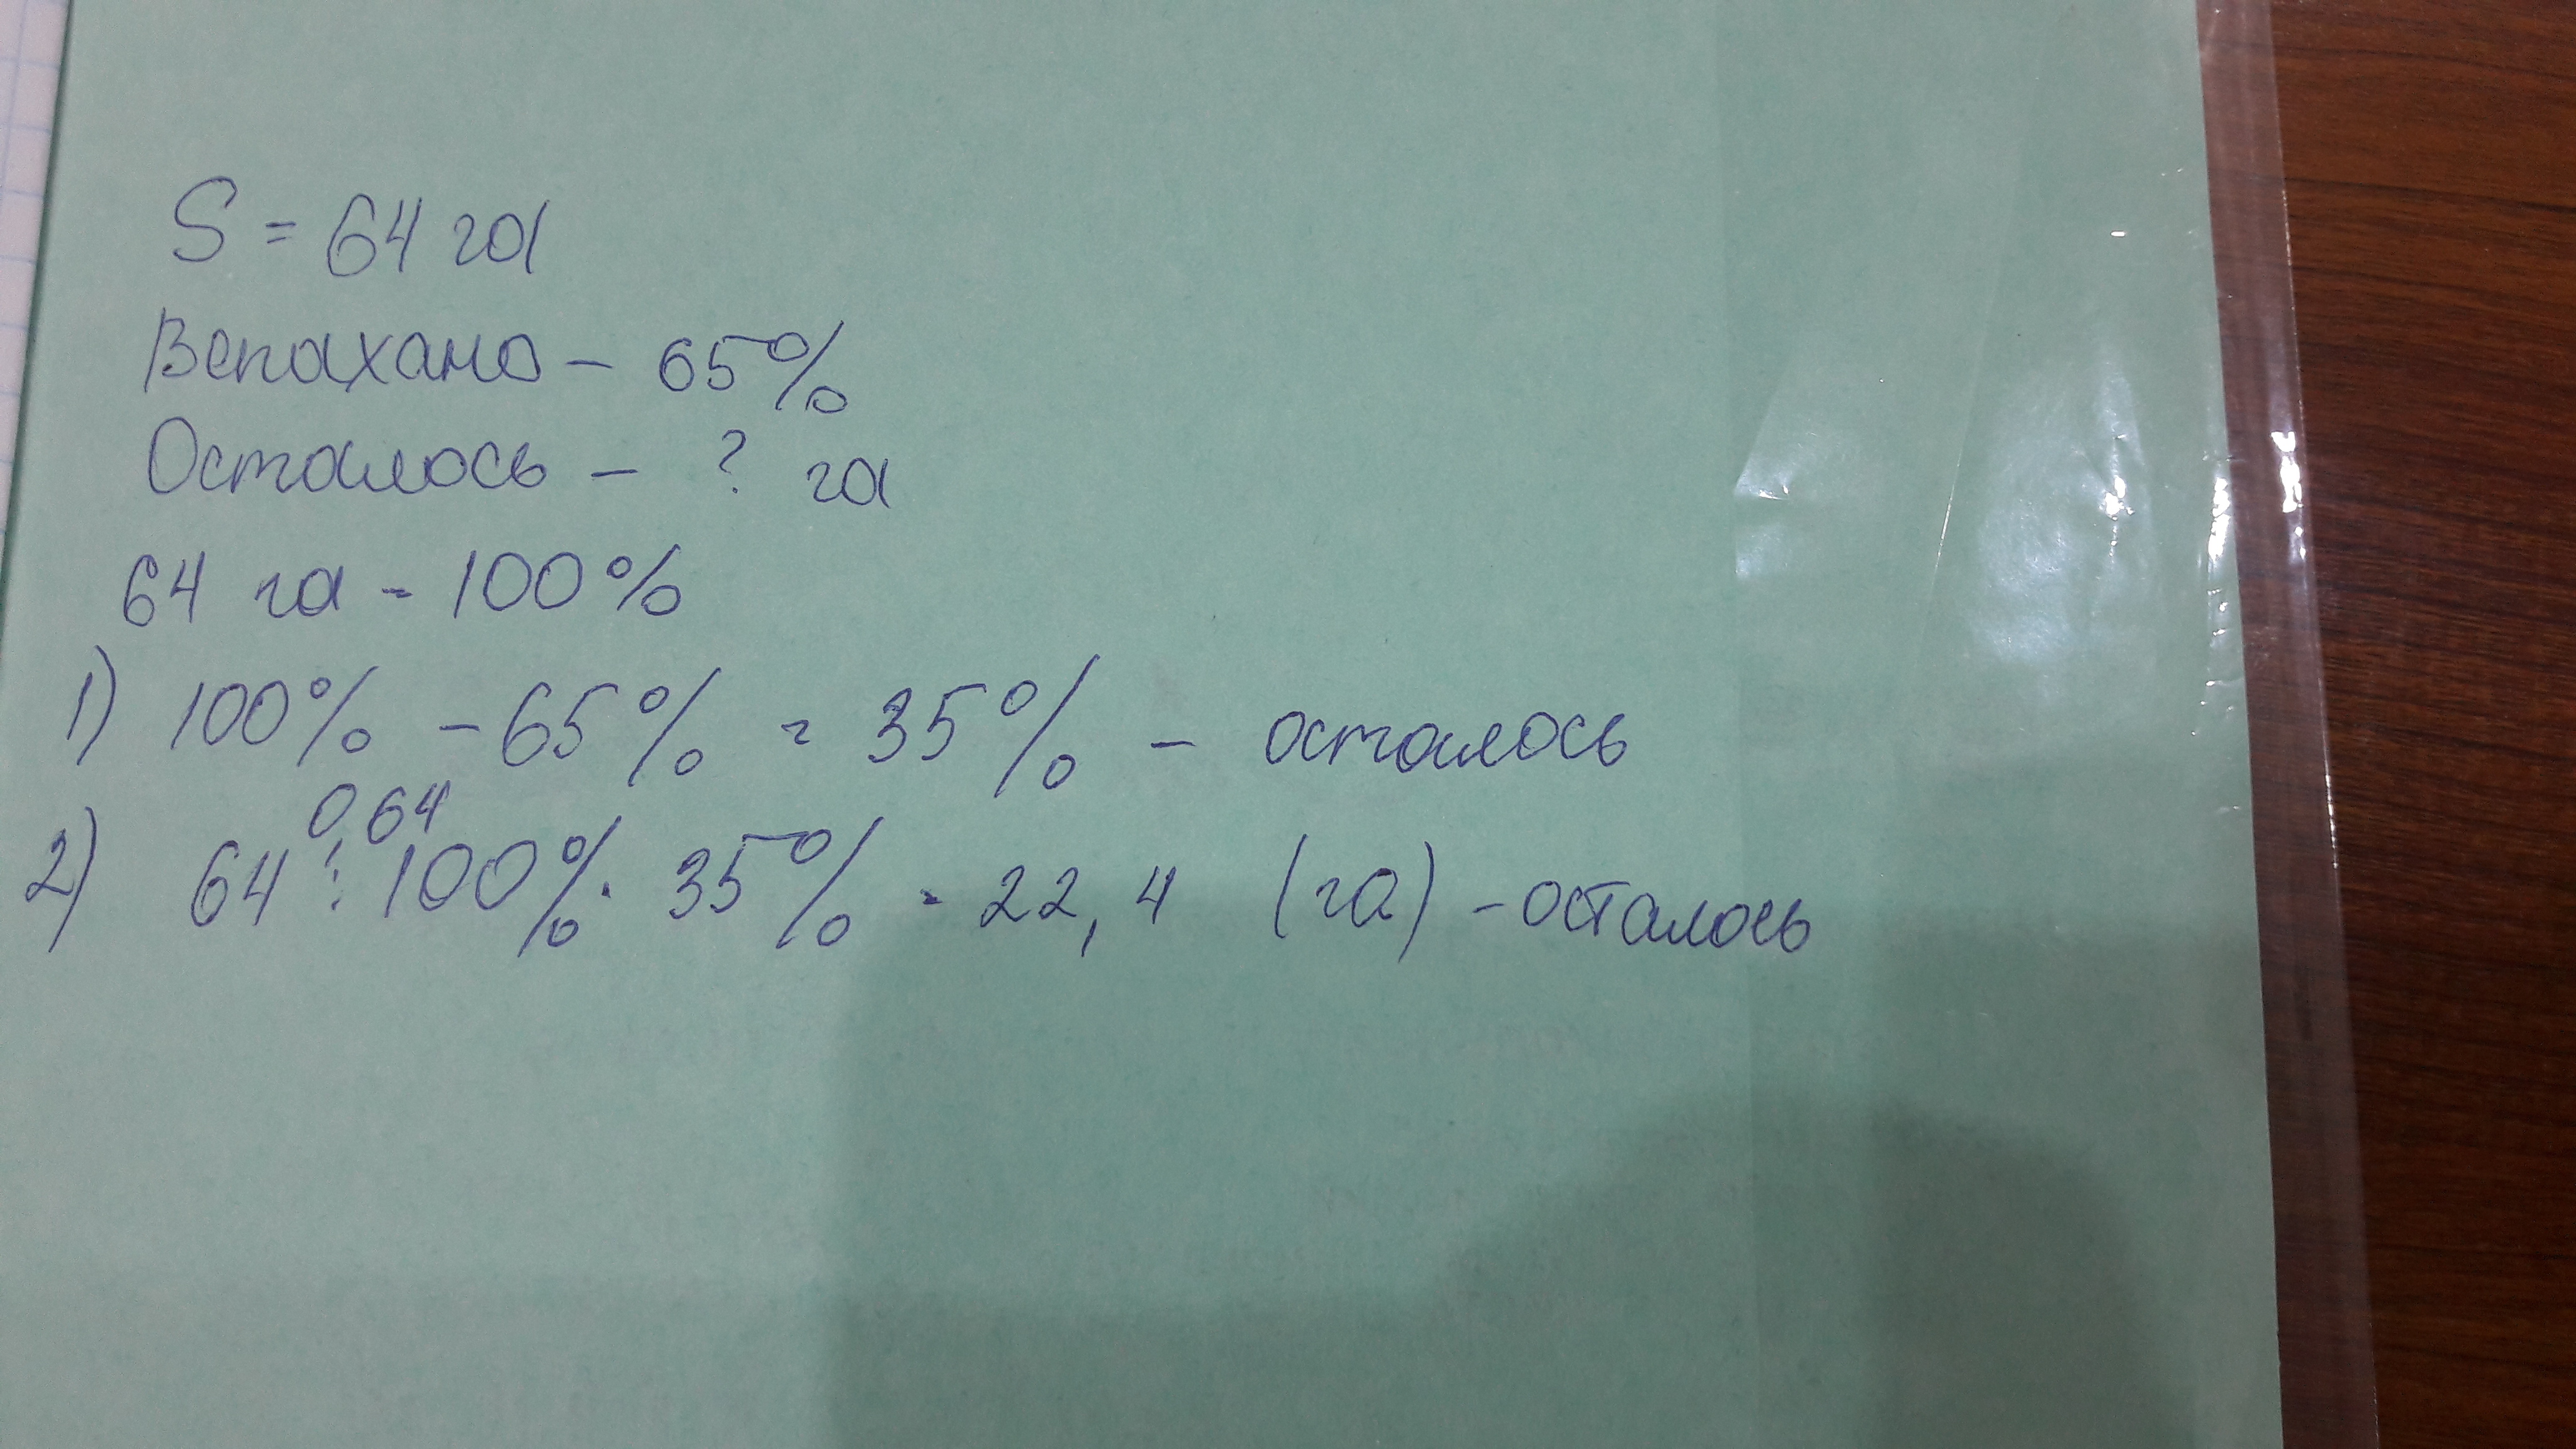 S = 64 га
Вспахано – 65%
Осталось – ? га
64 га - 100%
1) 100% – 65% = 35% – осталось
0,64
2) 64 : 100% · 35% = 22,4 (га) – осталось